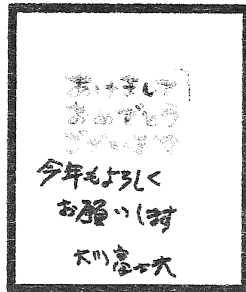 あけまして
おめでとう
ございます
今年もよろしく
お願いします
大川富士夫